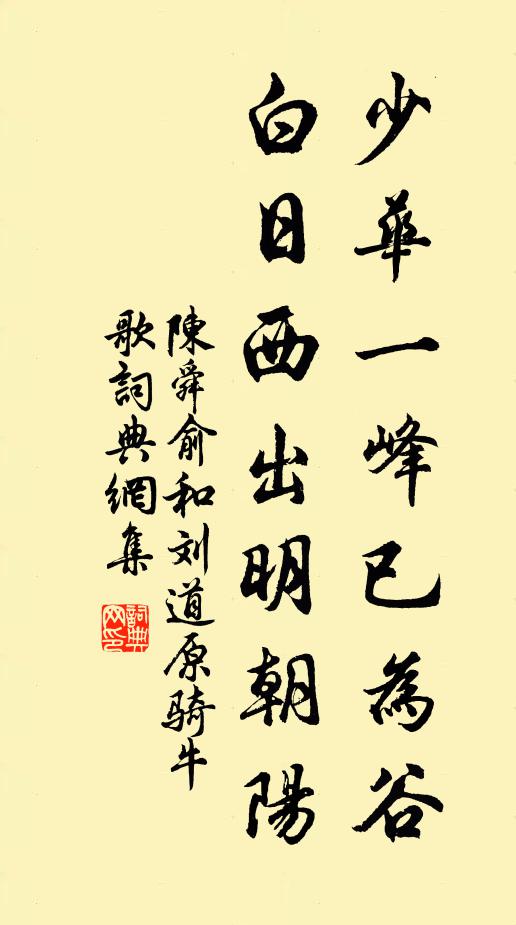 少華一峰已為谷
白日西出明朝陽
陳舜俞和刘道原骑牛
歌詞典網集
詞典网印